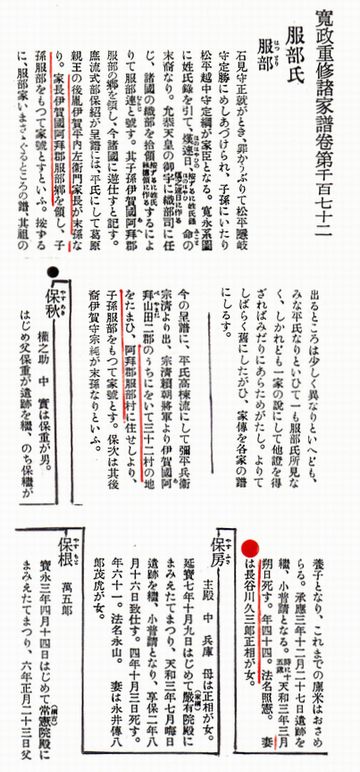 寛政重修諸家譜卷第千百七十二
服部氏
はつとり
服部
石見守正就がとき、罪かうぶりて松平隱岐
守定勝にめしあづけられ、子孫にいたり
松平越中守定綱が家臣となる。寛永系圖
に姓氏錄を引て、熯速日命の
末裔なり。允恭天皇の御宇に織部司に任
じ、諸國の織部を捴領するによ
りて服部連と號す。其子孫伊賀國阿拜郡
服部の鄕を領し、今諸國に遊仕すと記す。
庶流式部保紹が呈譜には、平氏にして葛原
親王の後胤伊賀平内左衞門家長が末孫な
り。家長伊賀國阿拜郡服部鄕を領し、子
孫服部をもつて家號とすといふ。按する
に、服部家いまさゝぐるところの譜、其祖の
出るところは少しく異なりといへども、
みな平氏なりといひて一も服部氏所見な
く、しかれども一家の說にして他證を得
ざればみだりにあらためがたし。よりて
しばらく舊にしたがひ、家傳を各家の譜
にしるす。
今の呈譜に、平氏高棟流にして彌平兵衞
宗淸より出、宗淸賴朝將軍より伊賀國阿
拜山田二郡のうちにをいて三十二村の地
をたまひ、阿拜郡服部村に住せしより、
子孫服部をもつて家號とす。保次は其後
裔伊賀守宗純が末孫なりといふ。
やすあき
保秋
權之助 中 實は保重が男。
はじめ父保重が遺跡を繼、のち保繼が
養子となり、これまでの廩米はおさめ
らる。承應三年十二月二十七日遺跡を
繼、小普請となる。時に十五歲 天和三年三月
朔日死す。年四十四。法名照憲。 妻
は長谷川久三郎正相が女。
やすふさ
保房
主殿 中 兵庫 母は正相が女。
延寶七年十月九日はじめて嚴有院殿に
まみえたてまつり、天和三年七月晦日
遺跡を繼、小普請となり、享保二年八
月十六日致仕す。四年十月三日死す。
年六十一。法名永山。 妻は永井傳八
郎茂虎が女。
やすね
保根
萬五郎
寶永三年四月十四日はじめて常憲院殿に
まみえたてまつり、六年正月二十三日父